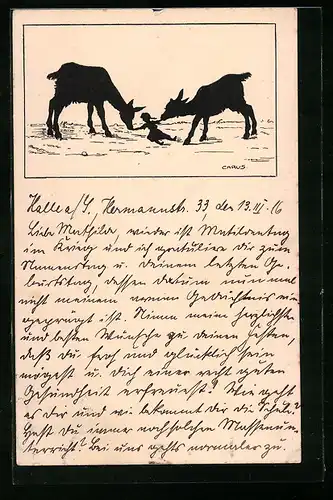 CARUS.
Halle a/S., Hermannstr. 33, den 13.III.16
Liebe Mathilda, wieder ist Matildentag
im Krieg und ich gratuliere dir zum
Namenstag u. deinem letzten Ge-
burtstag, dessen Datum nun mal
nicht meinem armen Gedächtnis ein-
geprägt ist. Nimm meine herzlichsten
und besten Wünsche zu deinen Festen,
daß du froh und glücklich sein
mögest u. dich einer recht guten
Gesundheit erfreuest! Wie geht
es dir und wie bekommt dir die Schule?
Hast du immer noch solchen Massenun-
terricht? Bei uns gehts normaler zu.